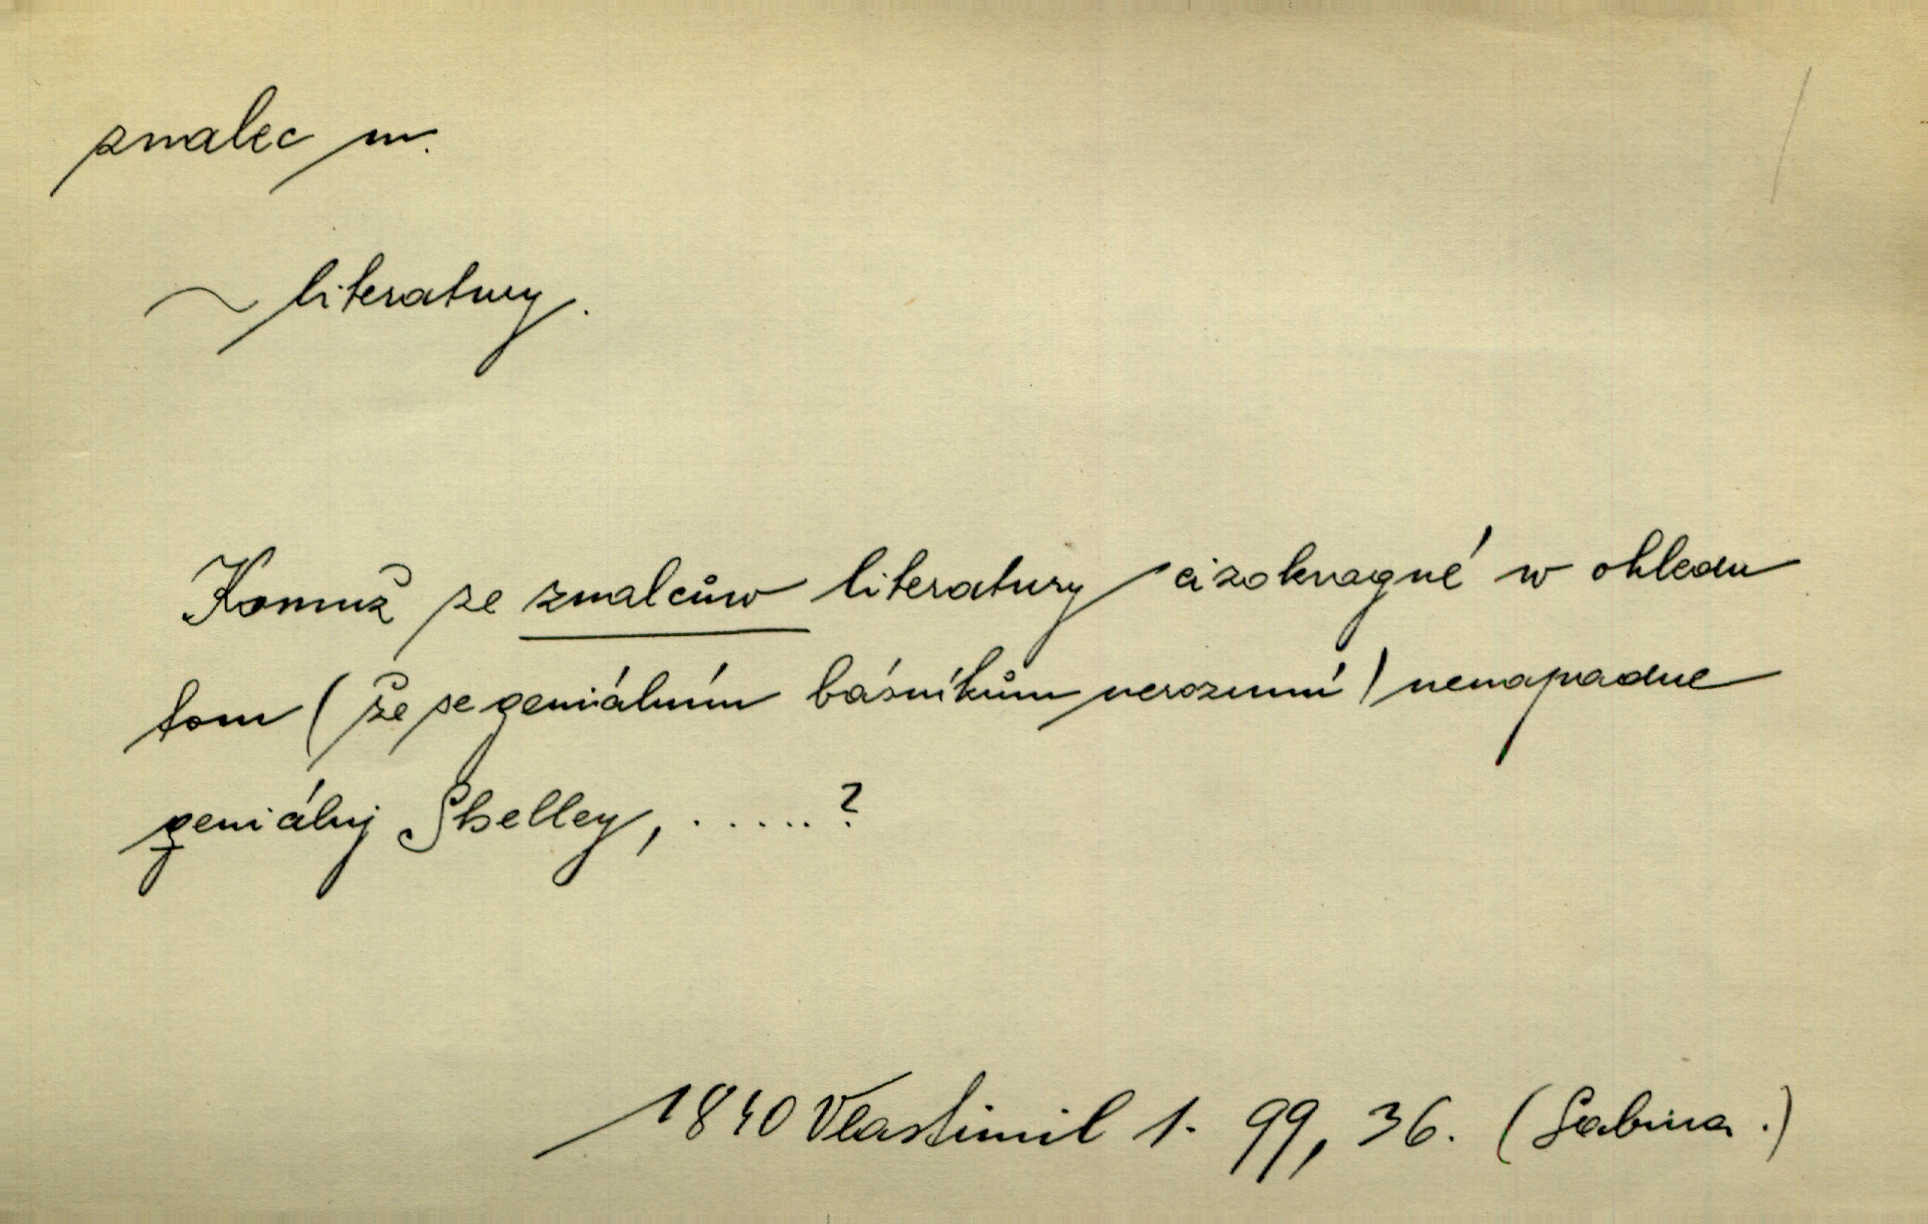 znalec m.
~ literatury.
Komuž ze znalcůw literatury cizokragné w ohledu
tom (že se geniálním básníkům nerozumí) nenapadne
geniálnj Shelley, ......?
1840 Vlastimil 1. 99, 36. (Sabina.)